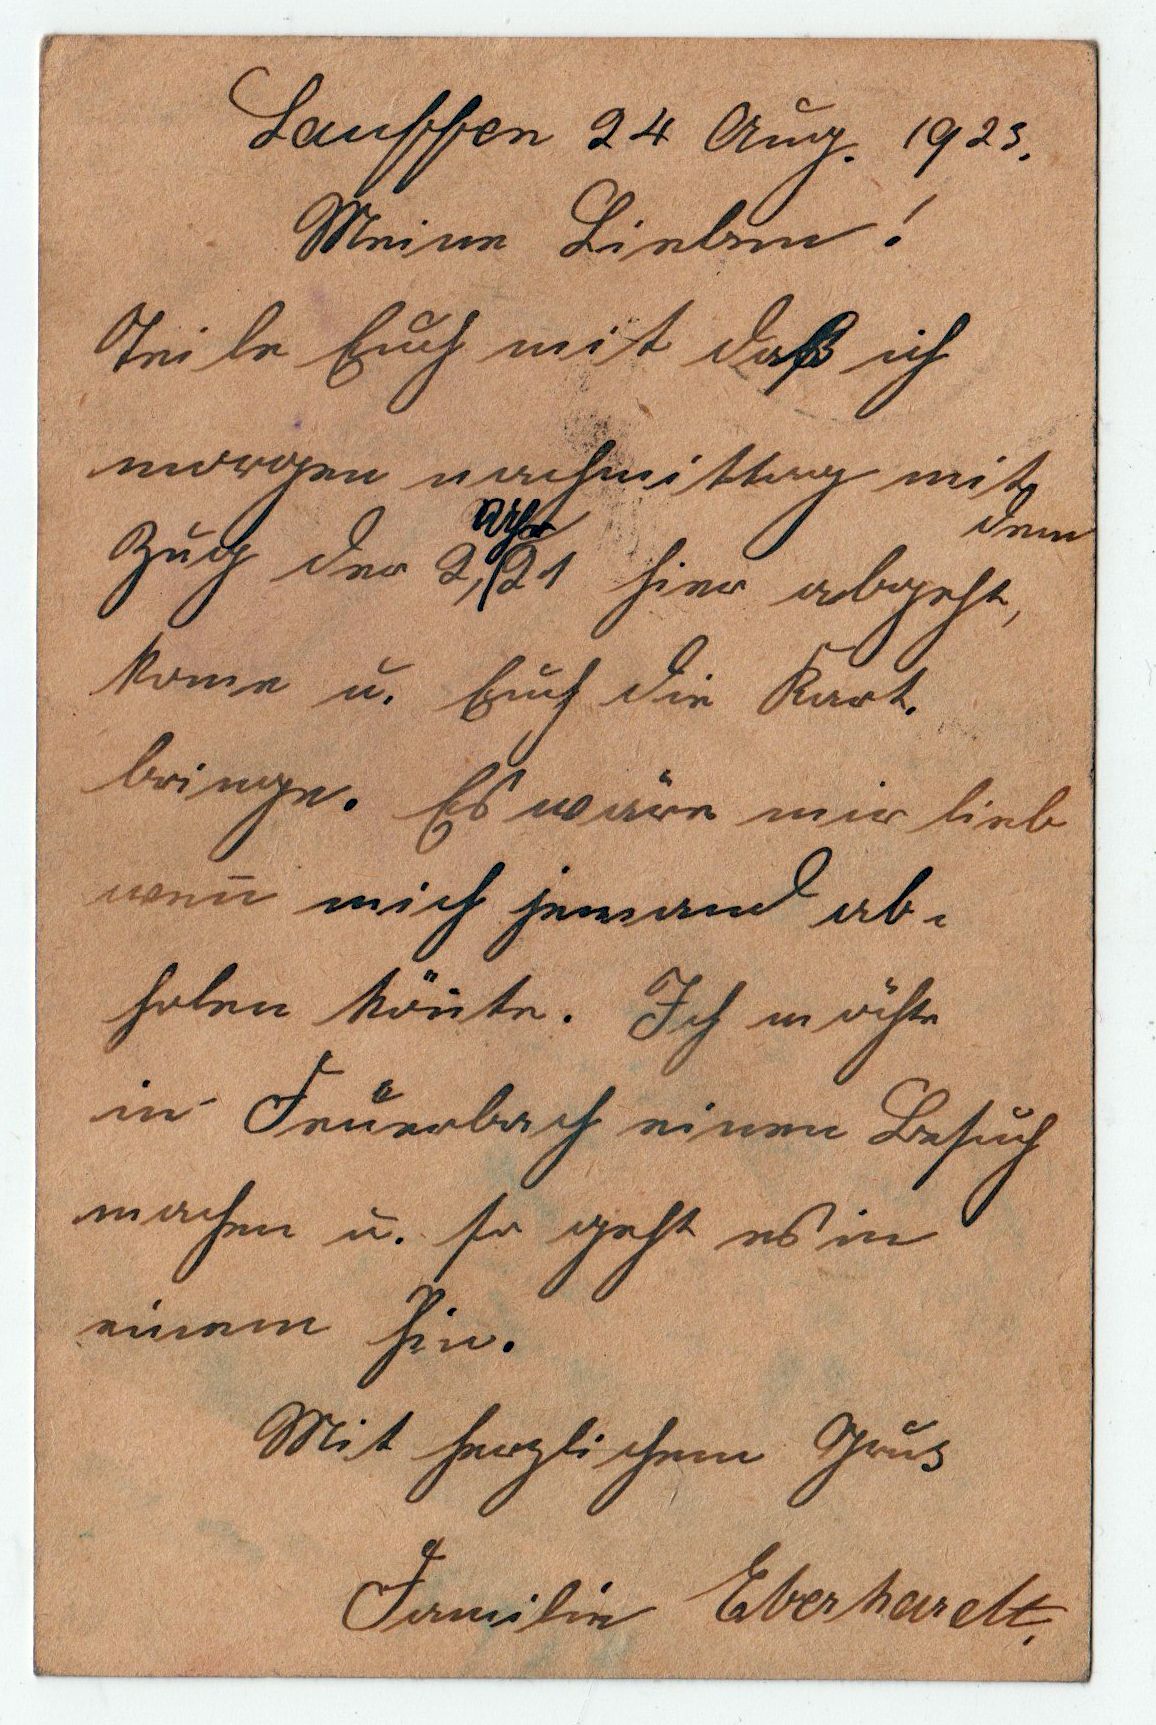 Lauffen 24 Aug. 1923.
Meine Lieben!
Teile Euch mit daß ich
morgen nachmittag mit
dem
Zug der 2, Uhr 21 hier abgeht,
kome u. Euch die Kart.
bringe. Es wäre mir lieb
wen̄ mich jemand ab-
holen kön̄te. Ich möchte
in Feuerbach einen Besuch
machen u. so geht es in
einem hin.
Mit herzlichem Grus
Familie Eberhardt.